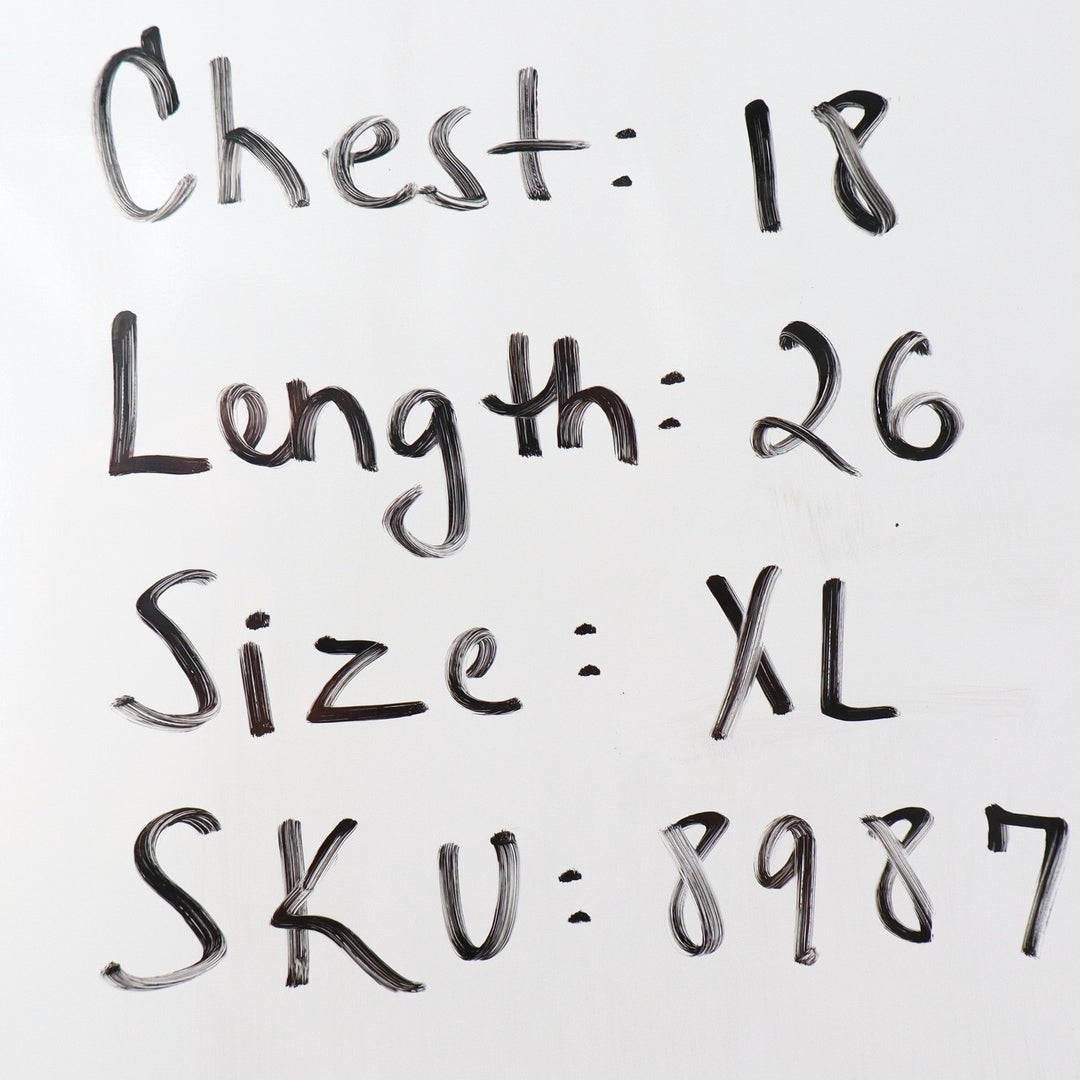 Chest: 18
Length: 26
Size: XL
SKU: 8987